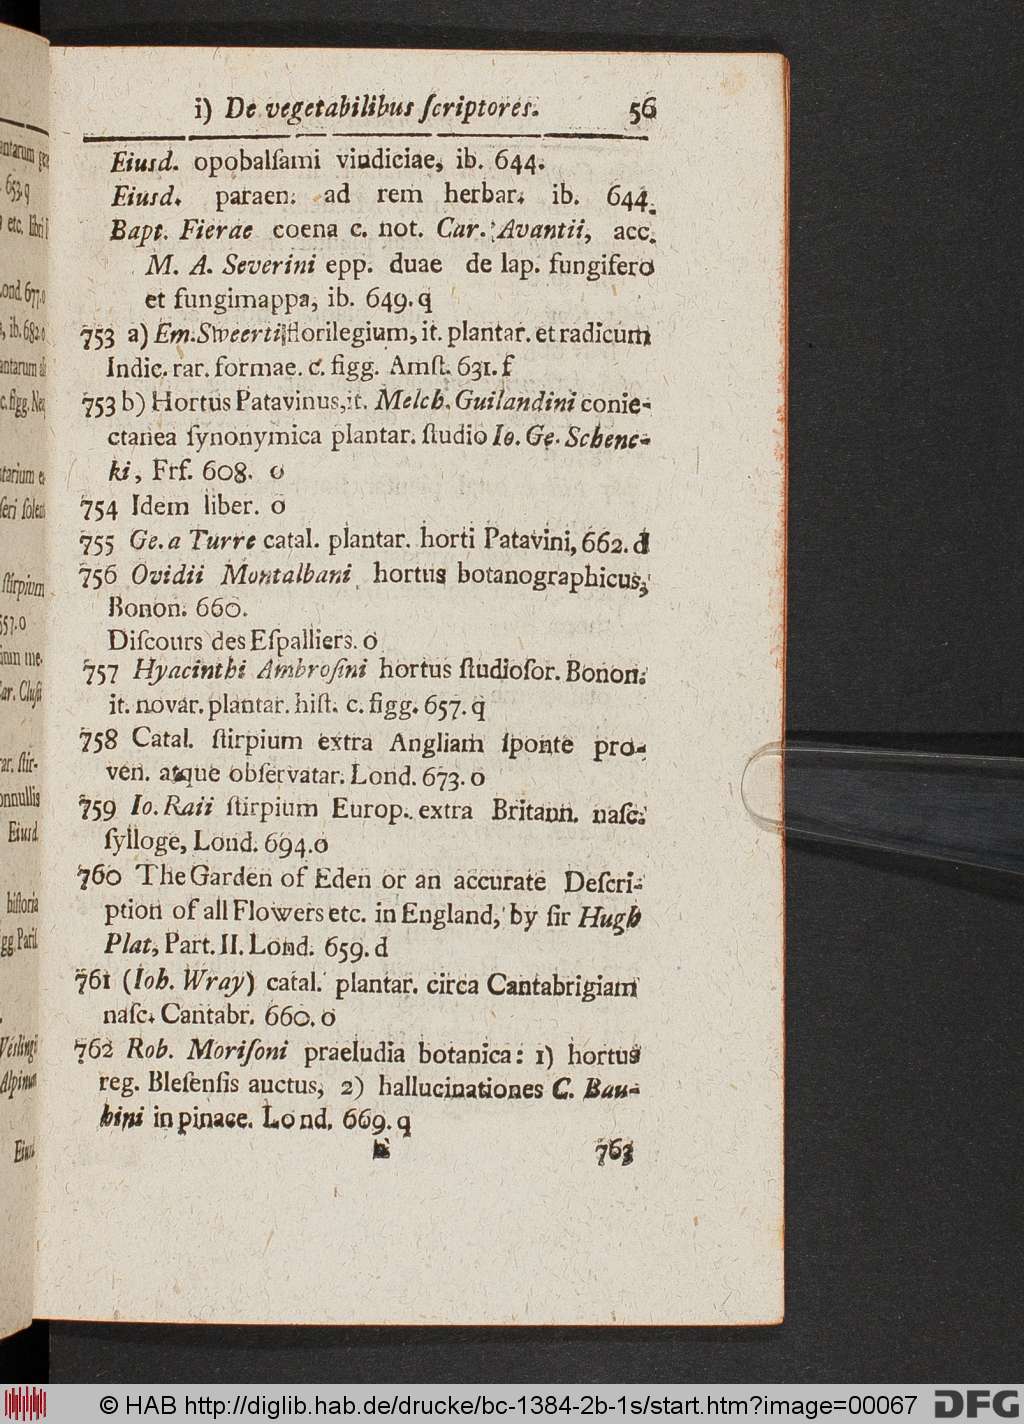 i) De vegetabilibus ſcriptores. 56
Eiusd. opobalſami vindiciae, ib. 644.
Eiusd. paraen. ad rem herbar. ib. 644.
Bapt. Fierae coena c. not. Car. Avantii, acc.
M. A. Severini epp. duae de lap. fungifero
et fungimappa, ib. 649. q
753 a) Em. Sweertii florilegium, it. plantar. et radicum
Indic. rar. formae. c. figg. Amſt. 631. f
753 b) Hortus Patavinus, it. Melch. Guilandini conie-
ctanea ſynonymica plantar. ſtudio Io. Ge. Schenc-
ki, Frf. 608. o
754 Idem liber. o
755 Ge. a Turre catal. plantar. horti Patavini, 662. d
756 Ovidii Montalbani hortus botanographicus,
Bonon. 660.
Diſcours des Eſpalliers. o
757 Hyacinthi Ambroſini hortus ſtudioſor. Bonon.
it. novar. plantar. hiſt. c. figg. 657. q
758 Catal. ſtirpium extra Angliam ſponte pro-
ven. atque obſervatar. Lond. 673. o
759 Io. Raii ſtirpium Europ. extra Britann. naſc.
ſylloge, Lond. 694. o
760 The Garden of Eden or an accurate Deſcri-
ption of all Flowers etc. in England, by ſir Hugh
Plat, Part. II. Lond. 659. d
761 (Ioh. Wray) catal. plantar. circa Cantabrigiam
naſc. Cantabr. 660. o
762 Rob. Moriſoni praeludia botanica: 1) hortus
reg. Bleſenſis auctus, 2) hallucinationes C. Bau-
hini in pinace. Lond. 669. q
763
© HAB http://diglib.hab.de/drucke/bc-1384-2b-1s/start.htm?image=00067
DFG